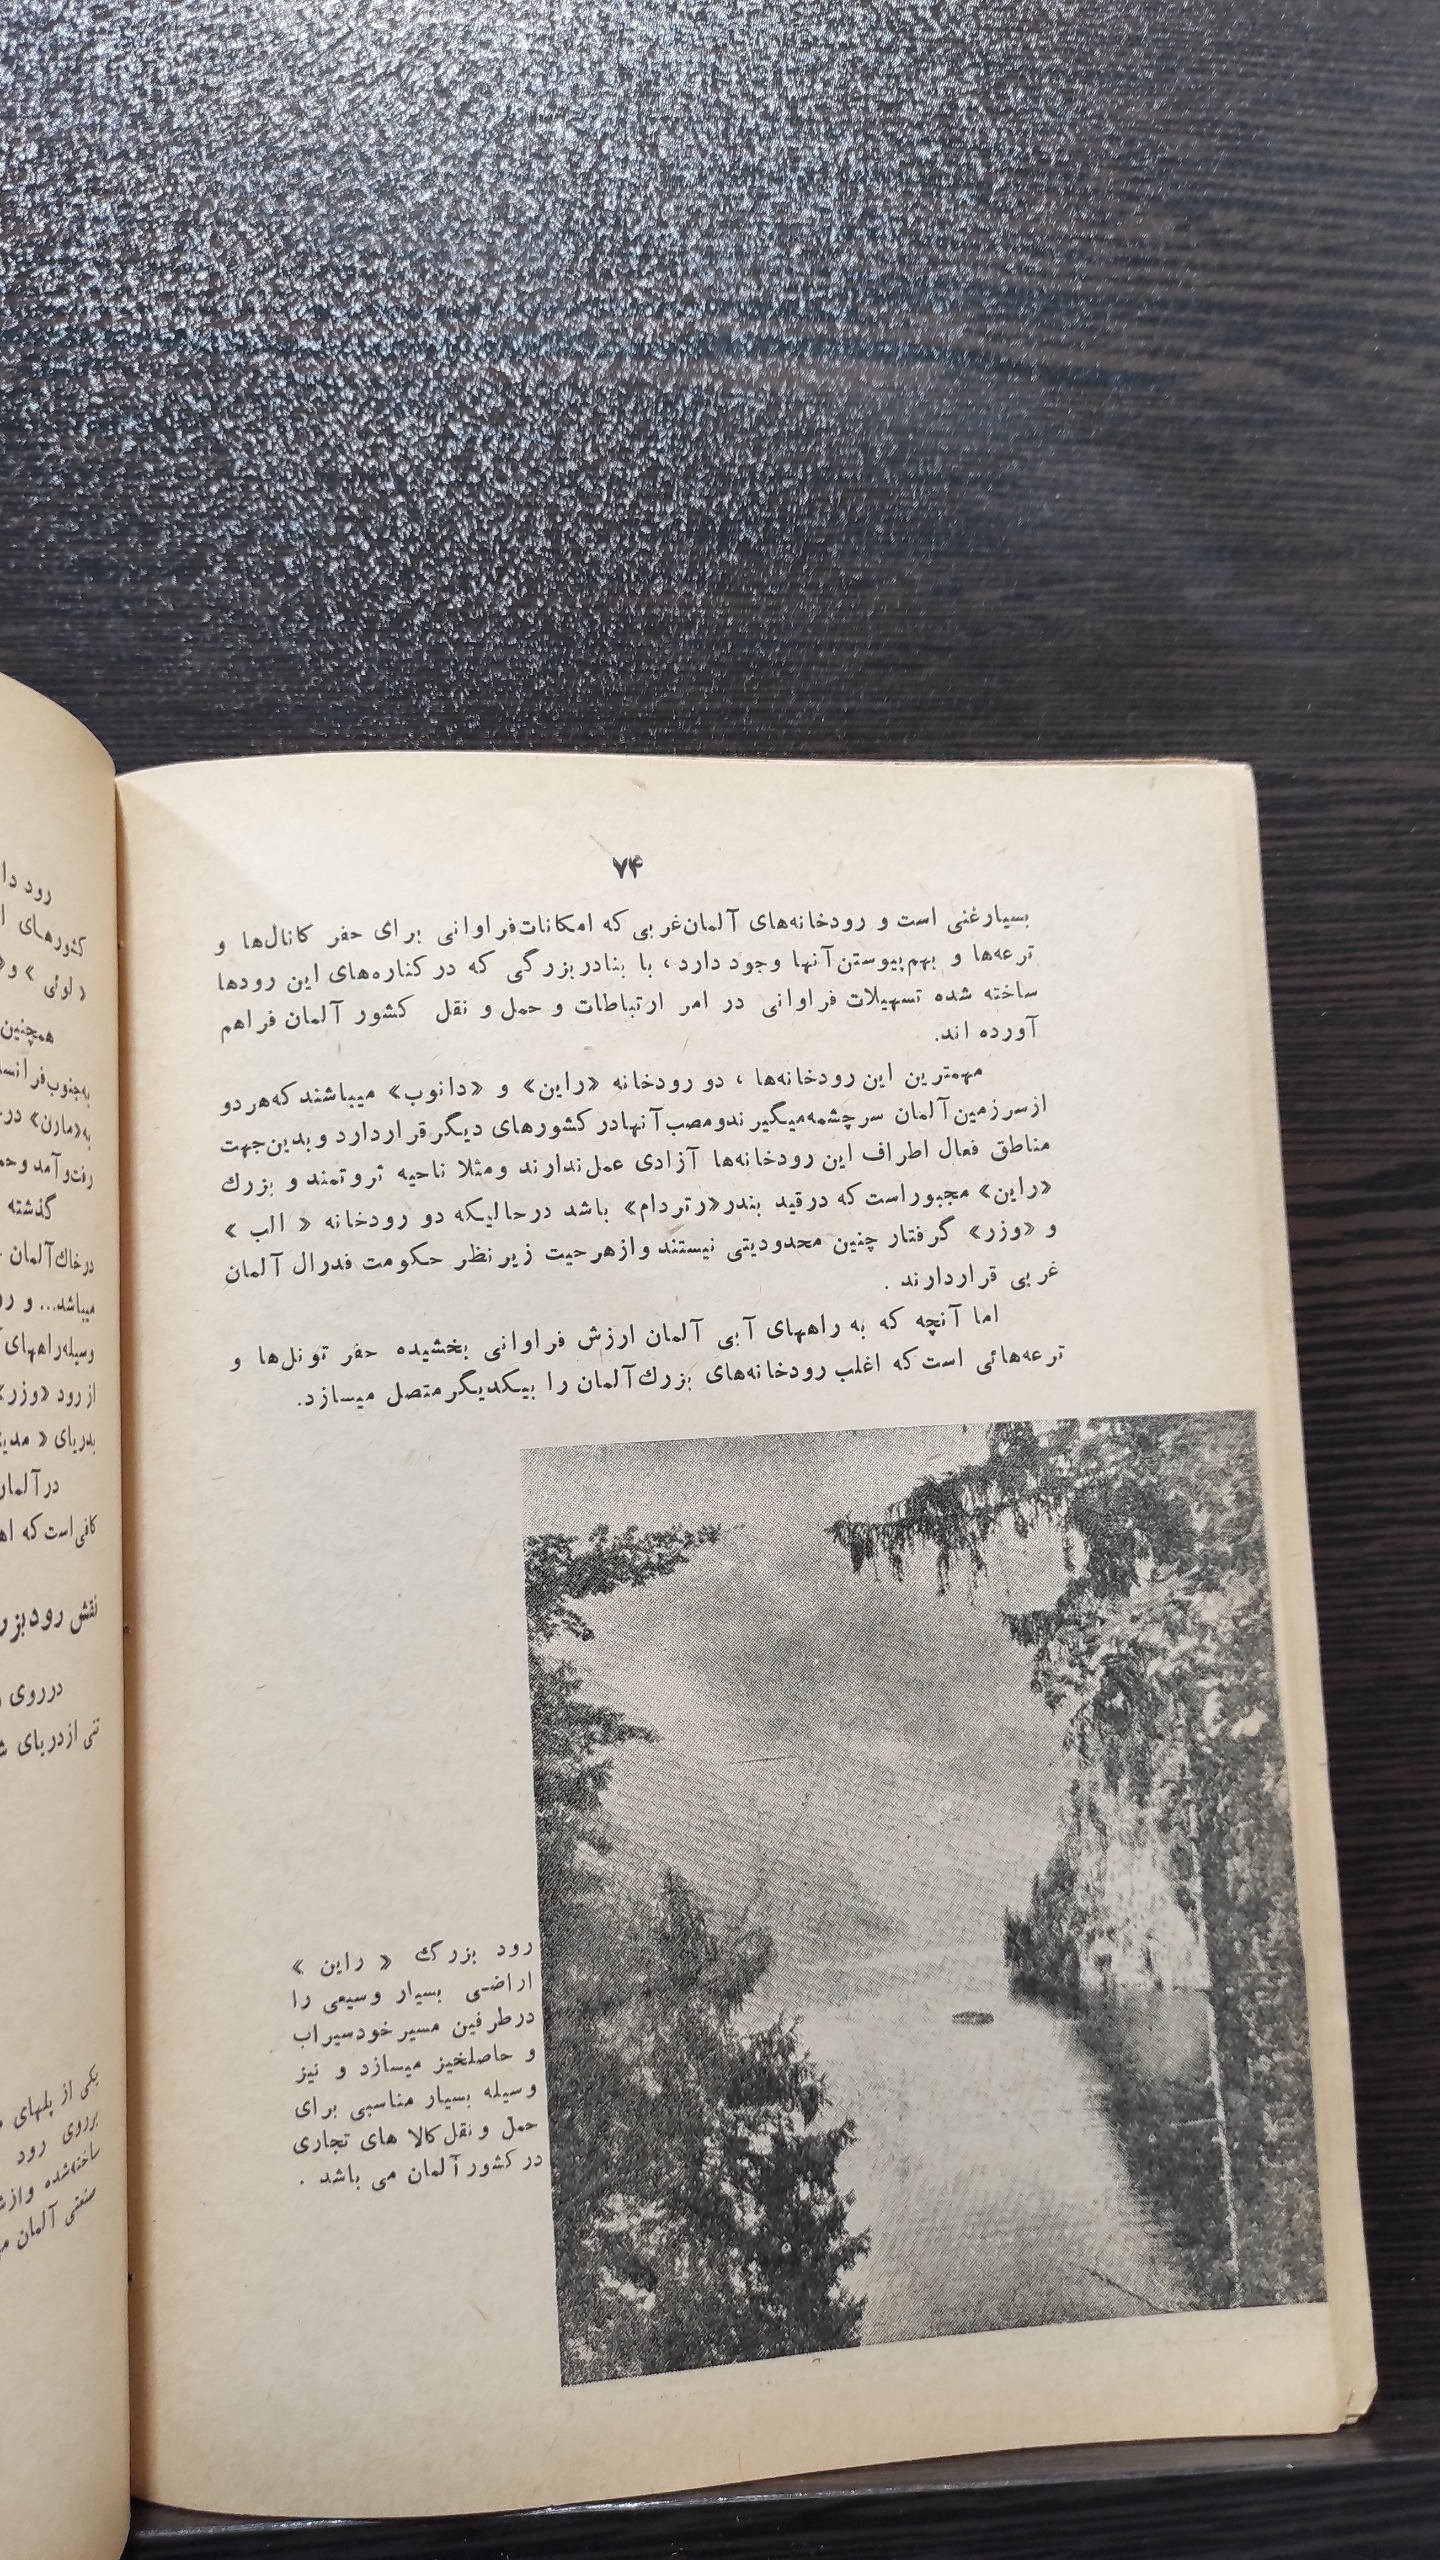 ۷۴
بسیارغنی است و رودخانه‌های آلمان‌غربی که امکانات‌فراوانی برای حفر کانال‌ها و
ترعه‌ها و بهم‌پیوستن‌آنها وجود دارد، با بنادربزرگی که در کناره‌های این رودها
ساخته شده تسهیلات فراوانی در امر ارتباطات و حمل و نقل کشور آلمان فراهم
آورده اند.
مهمترین این رودخانه‌ها ، دو رودخانه «راین» و «دانوب» میباشند که‌هر دو
ازسرزمین‌آلمان سرچشمه‌میگیرندومصب‌آنهادر کشورهای دیگر قراردارد و بدین‌جهت
مناطق فعال اطراف این رودخانه‌ها آزادی عمل‌ندارند ومثلا ناحیه ثروتمند و بزرك
«راین» مجبوراست که درقید بندر«رتردام» باشد درحالیکه دو رودخانه « الب »
و «وزر» گرفتار چنین محدودیتی نیستند وازهرحیت زیرنظر حکومت فدرال آلمان
غربی قراردارند .
اما آنچه که به راههای آبی آلمان ارزش فراوانی بخشیده حفر تونل‌ها و
ترعه‌هائی است‌که اغلب رودخانه‌های بزرك‌آلمان را بیکدیگر متصل میسازد.
رود بزرگ « راین »
اراضی بسیار وسیعی را
درطرفین مسیر خودسیراب
و حاصلخیز میسازد و نیز
وسیله بسیار مناسبی برای
حمل و نقل‌کالا های تجاری
در کشور آلمان می باشد .
رود
کشورهای
«لوئی» و
همچنین
به‌جنوب
به«مازن» در
رفت‌و آمد و
گذشته
درخاك‌آلمان
میباشد... و
وسیله‌راههای
از رود «وزر»
بدریای «
در آلمان
کافی‌است‌که
نقش رود
درروی
تنی ازدریای
یکی از پلهای
برروی رود
ساخته‌شده
صنعتی آلمان